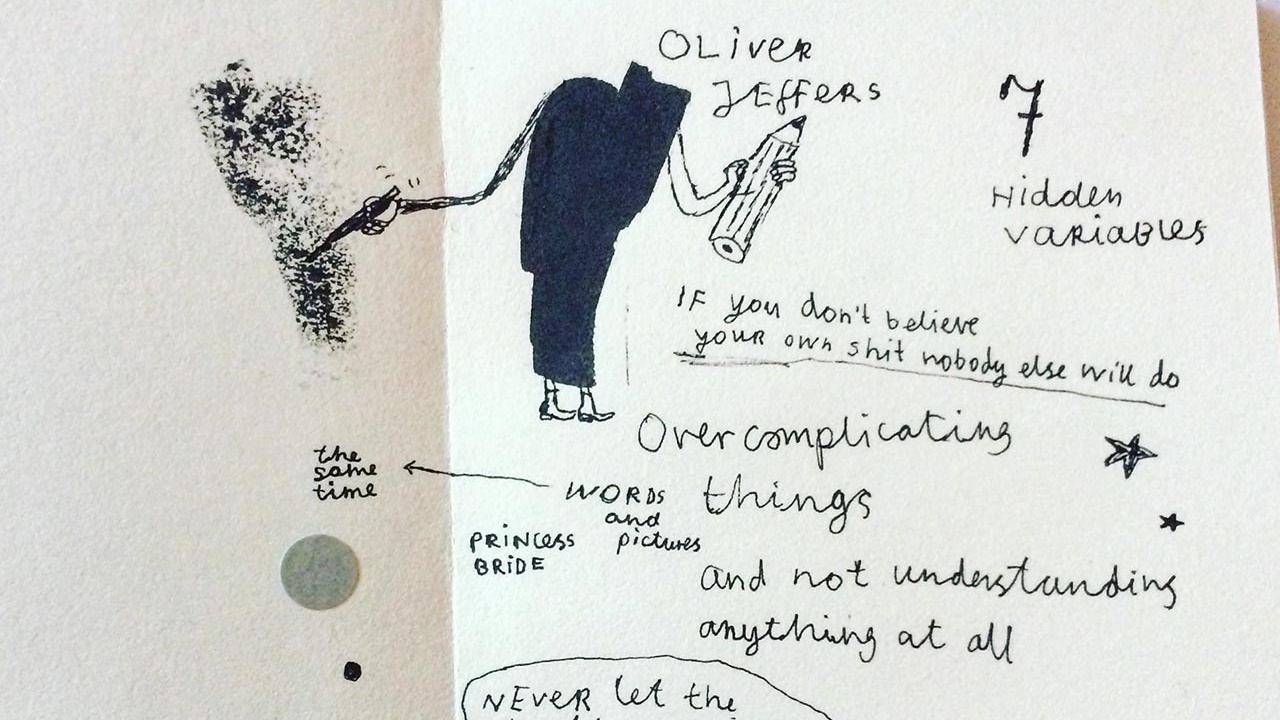 OLiver
JEffers
7
Hidden
variables
IF you don't believe
your own shit nobody else will do
Overcomplicating
things
and not understanding
anything at all
the
same
time
WORDS
and
pictures
PRiNcess
BRiDE
NEver let the